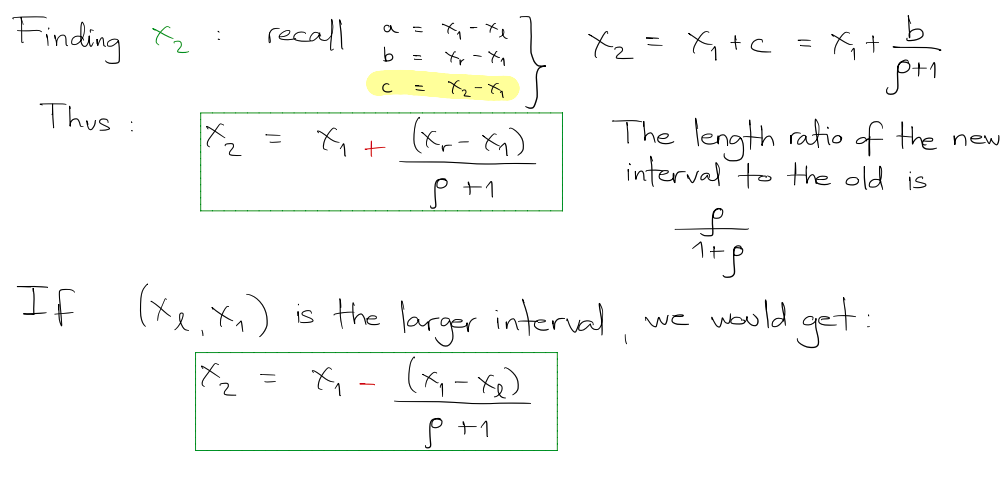 Finding x₂ : recall a = x₁ - xₗ
b = xᵣ - x₁
c = x₂ - x₁
x₂ = x₁ + c = x₁ + b/(ρ+1)
Thus : x₂ = x₁ + (xᵣ - x₁)/(ρ + 1)
The length ratio of the new
interval to the old is
ρ/(1+ρ)
If (xₗ, x₁) is the larger interval, we would get :
x₂ = x₁ - (x₁ - xₗ)/(ρ + 1)